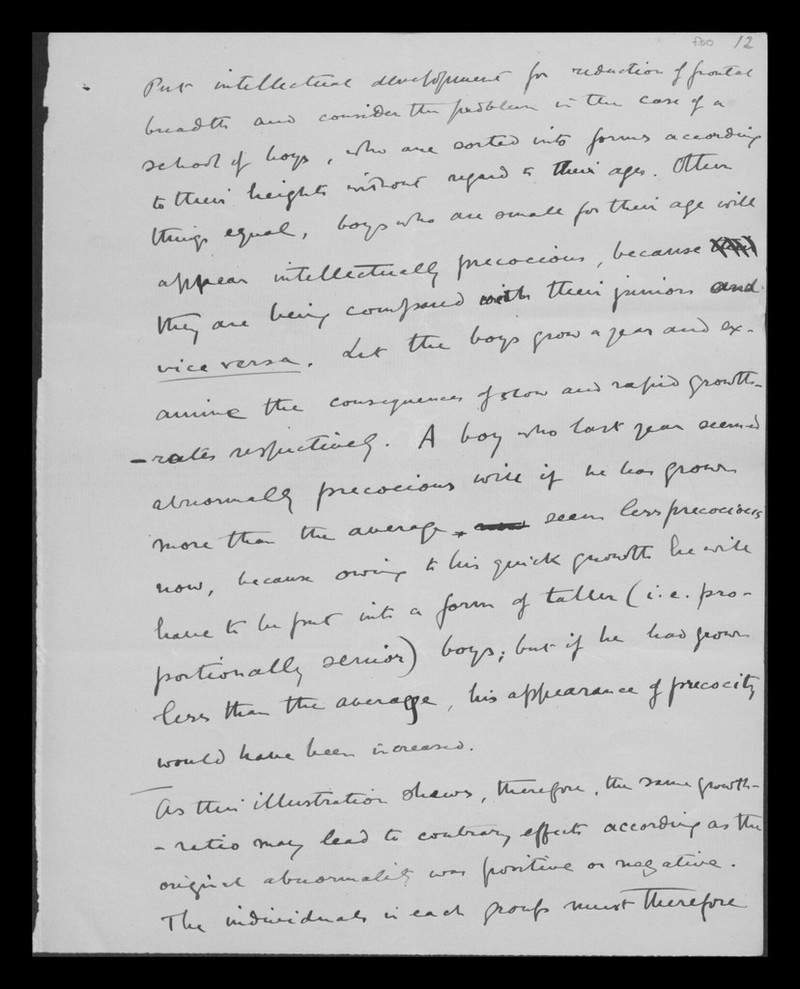 12
Put intellectual development for reduction of frontal
breadth and consider the problem in the case of a
school of boys, who are sorted into forms according
to their heights without regard to their ages. Other
things equal, boys who are small for their age will
appear intellectually precocious, because
they are being compared with their juniors and
vice versa. Let the boys grow a year and ex-
amine the consequences of slow and rapid growth-
-rates respectively. A boy who last year seemed
abnormally precocious will if he has grown
more than the average, seem less precocious
now, because owing to his quick growth he will
have to be put into a form of taller (i.e. pro-
portionally senior) boys; but if he had grown
less than the average, his appearance of precocity
would have been increased.
As this illustration shews, therefore, the same growth-
-ratio may lead to contrary effects according as the
original abnormality was positive or negative.
The individuals in each group must therefore